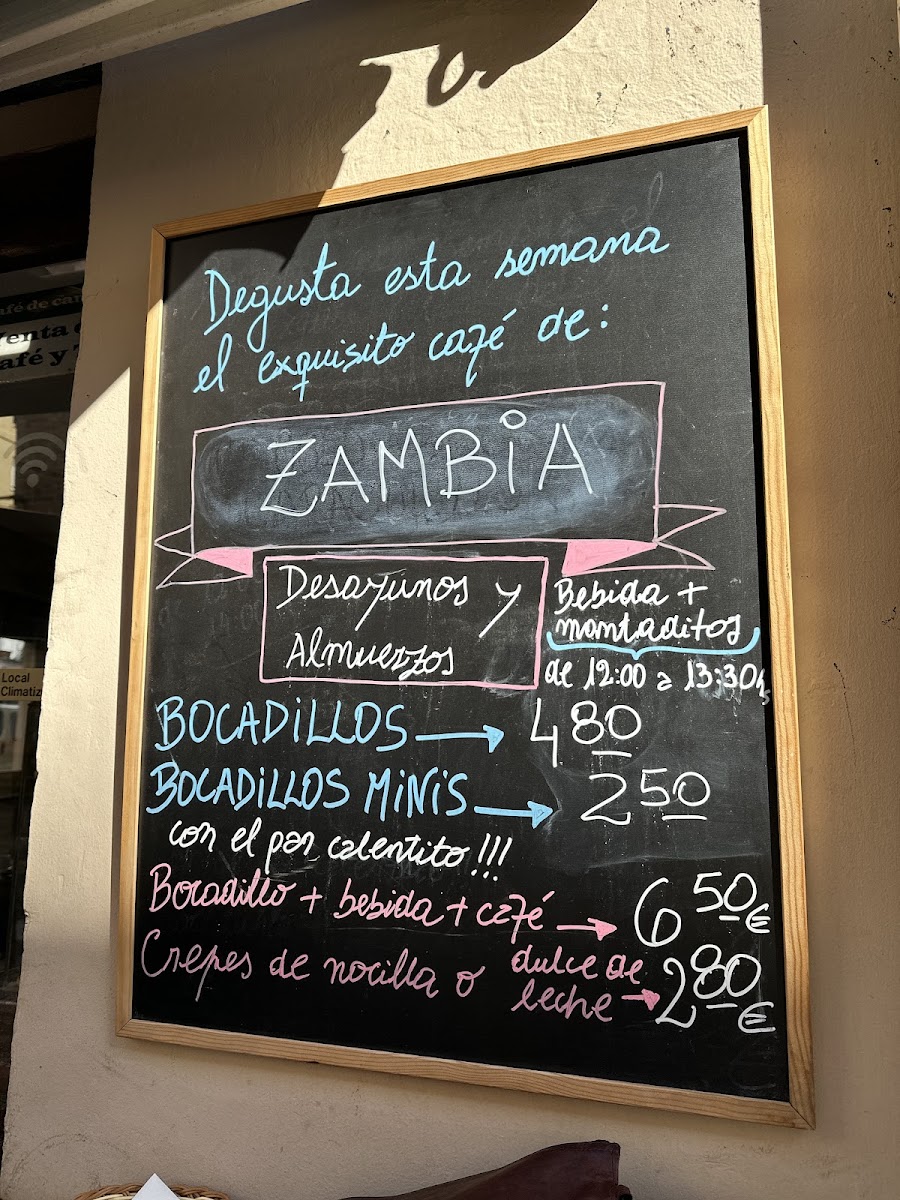 Degusta esta semana
el exquisito café de:
ZAMBIA
Desayunos y
Almuerzos
Bebida +
montaditos
de 12:00 a 13:30h
BOCADILLOS → 4 80
BOCADILLOS MINIS → 2 50
con el pan calentito!!!
Bocadillo + bebida + café → 6 50 €
Crepes de nocilla o dulce de
leche → 2 80 €
café de
Venta
café y
Local
Climatiz